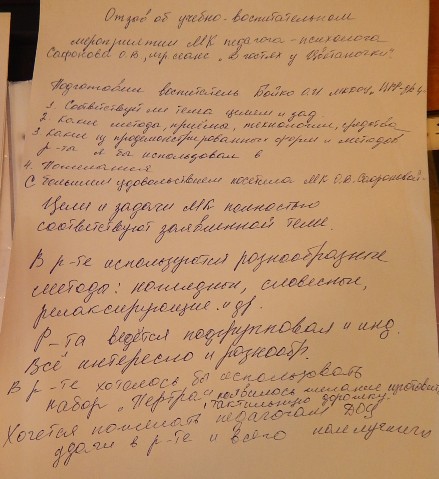 Отзыв об учебно-воспитательном
мероприятии МК педагога-психолога
Сафоновой О.В., игр. сеанс „В гостях у
Подготовили воспитатель Бойко О.Н.
1. Соответствуют ли тема целям и зад
2 какие метода, приёмы, технологии, средства
3. какие из продемонстрированных форм и методов
р-та я бы использовал в
4. Пожелания
С большим удовольствием посетила МК О.В. Сафоновой
Цели и задачи МК полностью
соответствуют заявленной теме.
В р-те используются разнообразные
метода: наглядный, словесный,
релаксирующие и др.
Р-та ведётся подгрупповая и инд.
Всё интересно и разнообр.
В р-те хотелось бы использовать
набор „Пертра" появилось желание изготовить
тактильную дорожку.
Хочется пожелать педагогам ДОУ
удачи в р-те и всего наилучшего